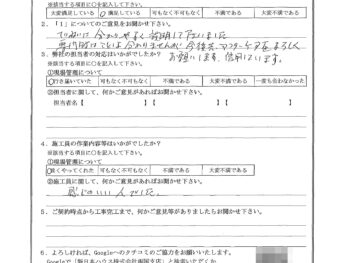 大変満足している 満足している 可もなく不可もなく 不満である 大変不満である
2．「1」についてのご意見をお聞かせ下さい。
ていねいに 分かりやすく 説明して下さいました
今後共、アフターケアをよろしく
お願いします。
3．弊社の担当者の対応はいかがでしたか？
※該当する項目に○を記入して下さい。
①現場管理について
行き届いている 可もなく不可もなく 不満である 大変不満である 一度も会わなかった
②担当者に関して、何かご意見があればお聞かせ下さい。
担当者名【 】【 】
4．施工員の作業内容等はいかがでしたか？
※該当する項目に○を記入して下さい。
①現場管理について
良くやってくれた 可もなく不可もなく 不満である 大変不満である
②施工員に関して、何かご意見があればお聞かせ下さい。
感じのいい 人
5．ご契約時点から工事完工まで、何かご意見等がありましたらお聞かせ下さい。
6．よろしければ、Googleへのクチコミのご協力をお願いいたします。